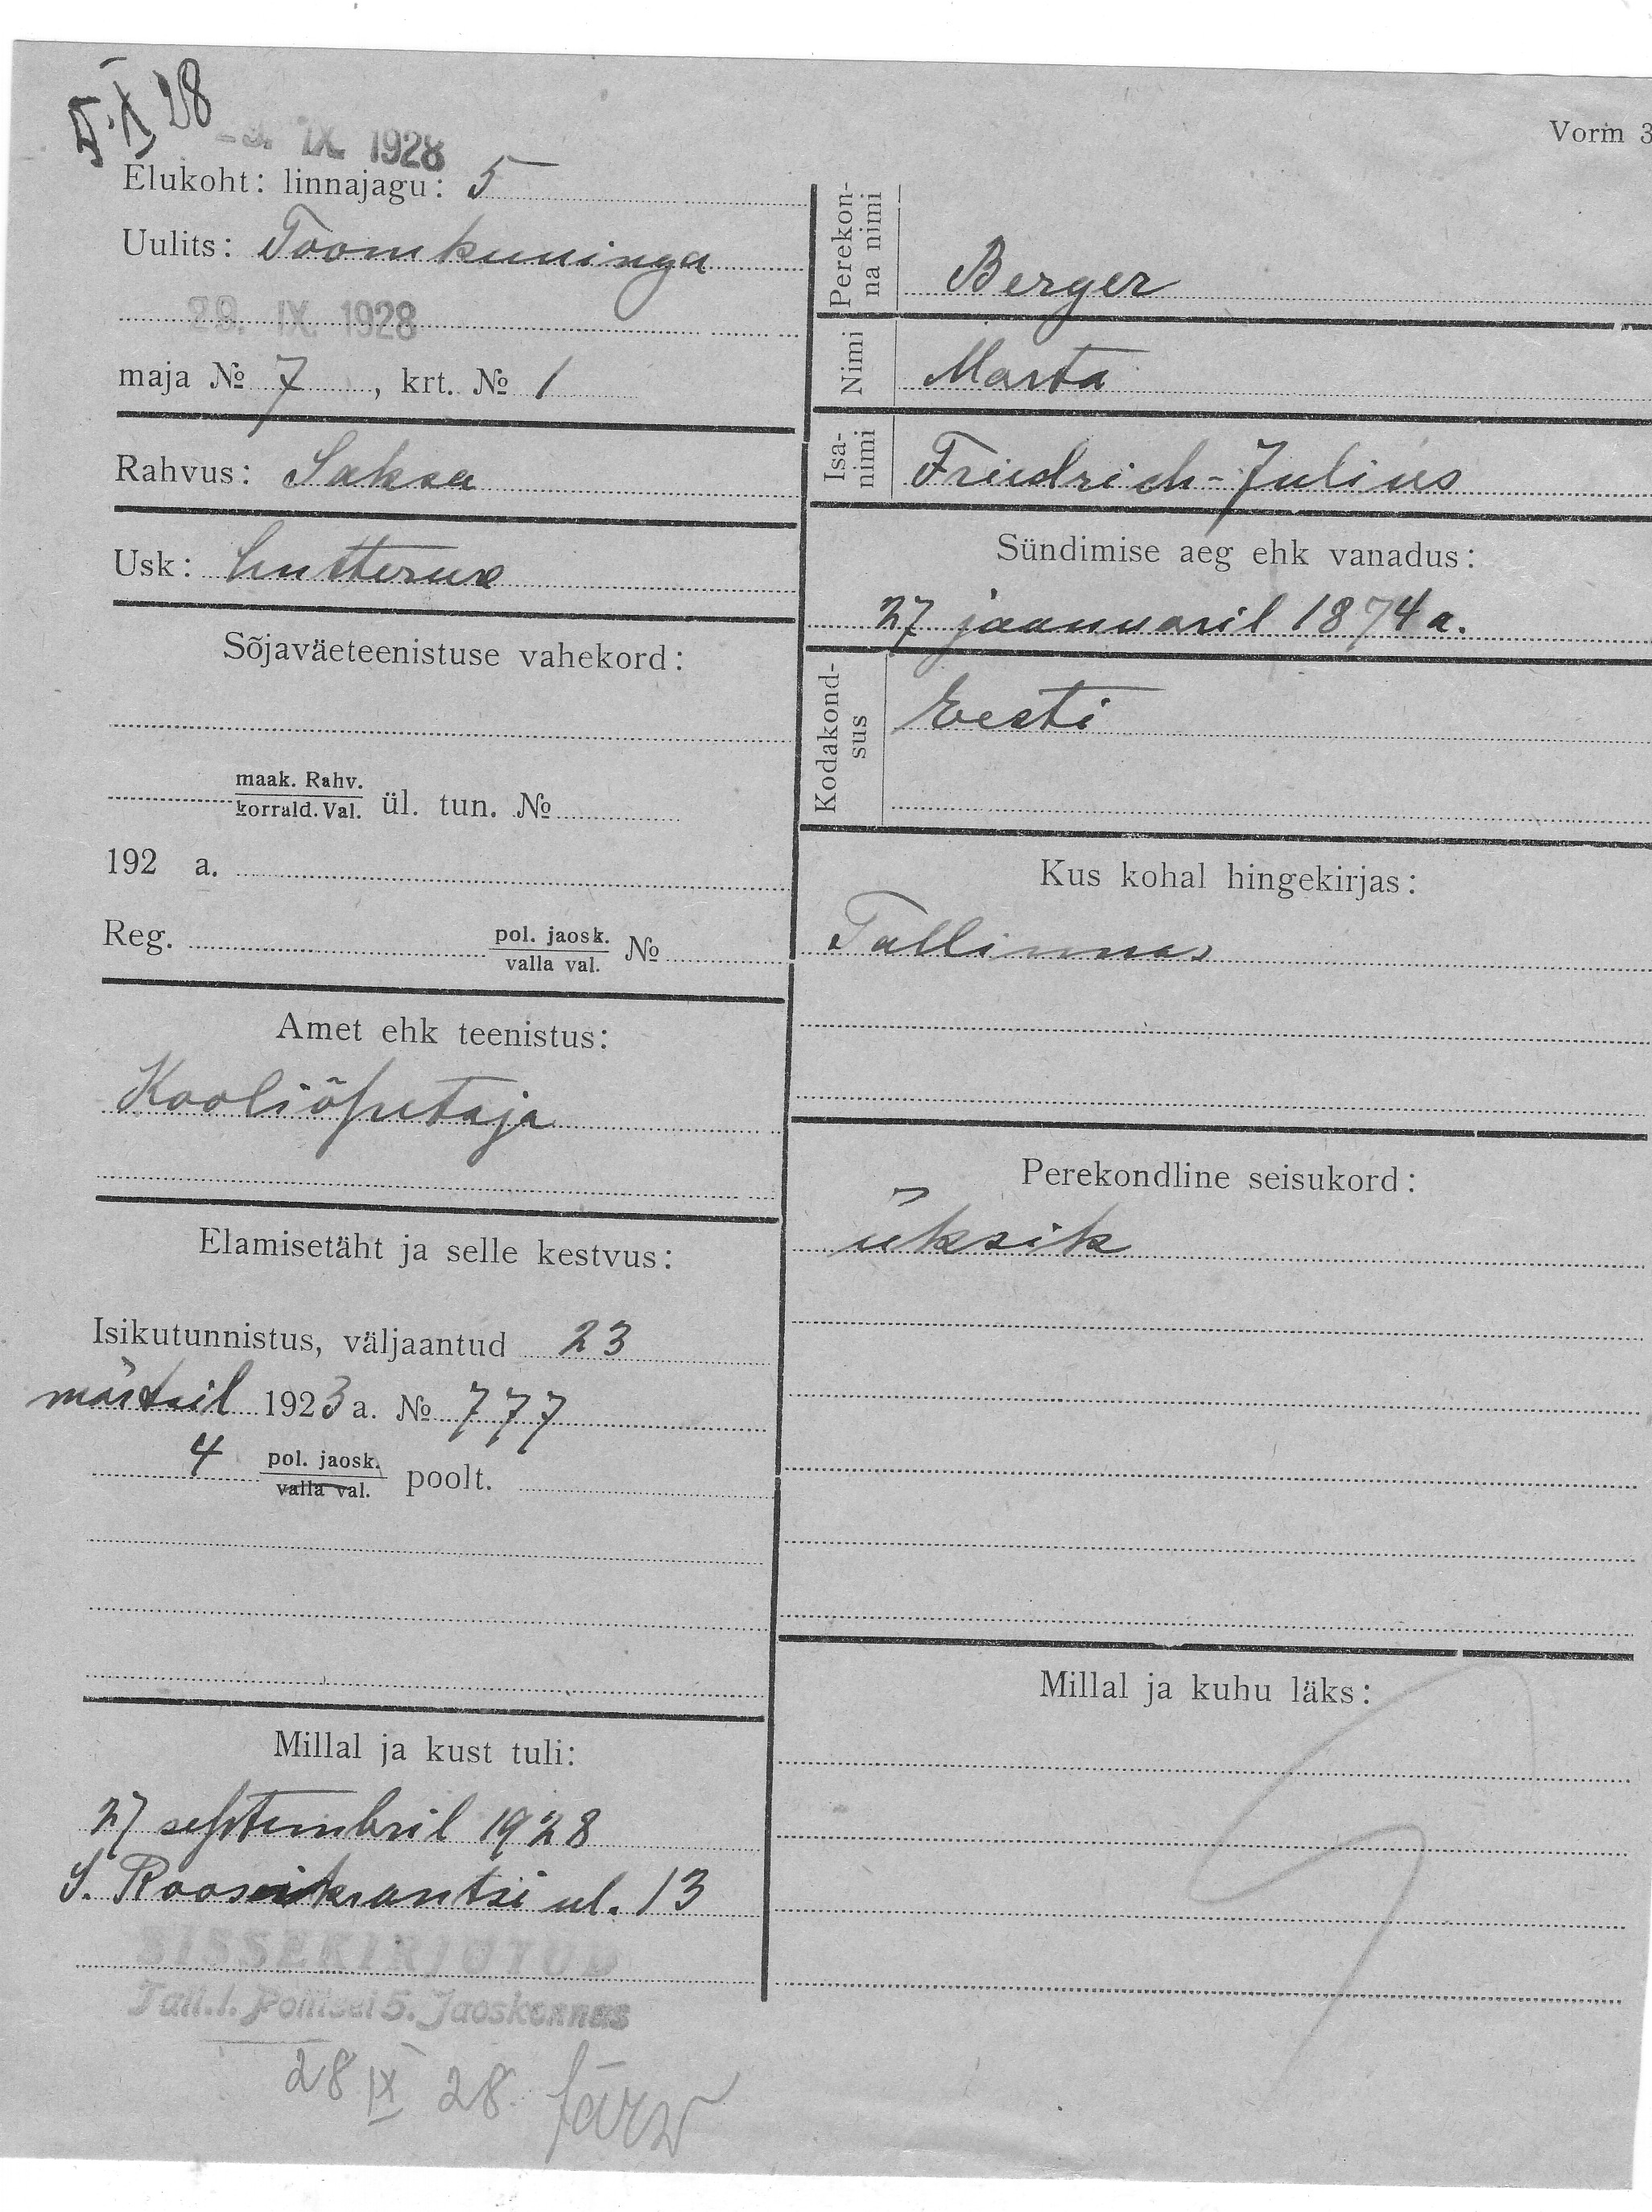 Vorm 3
IX 1928
Elukoht: linnajagu: 5
Uulits: Toomkuninga
29. IX. 1928
maja № 7, krt. № 1
Rahvus: Saksa
Usk: Lutterus
Sõjaväeteenistuse vahekord:
maak. Rahv.
korrald. Val. ül. tun. №
192 a.
Reg. pol. jaosk. №
valla val.
Amet ehk teenistus:
Kooliõpetaja
Elamisetäht ja selle kestvus:
Isikutunnistus, väljaantud 23
märtsil 1923 a. № 777
4 pol. jaosk. poolt.
valla val.
Millal ja kust tuli:
27 septembril 1928
S. Roosikrantsi ul. 13
SISSEKIRJUTUD
Tall. l. Politsei 5. Jaoskonnas
28 IX 28. Järw
Perekon-
na nimi
Berger
Nimi
Marta
Isa-
nimi
Friedrich-Julius
Sündimise aeg ehk vanadus:
27 jaanuaril 1874 a.
Kodakond-
sus
Eesti
Kus kohal hingekirjas:
Tallinnas
Perekondline seisukord:
üksik
Millal ja kuhu läks: